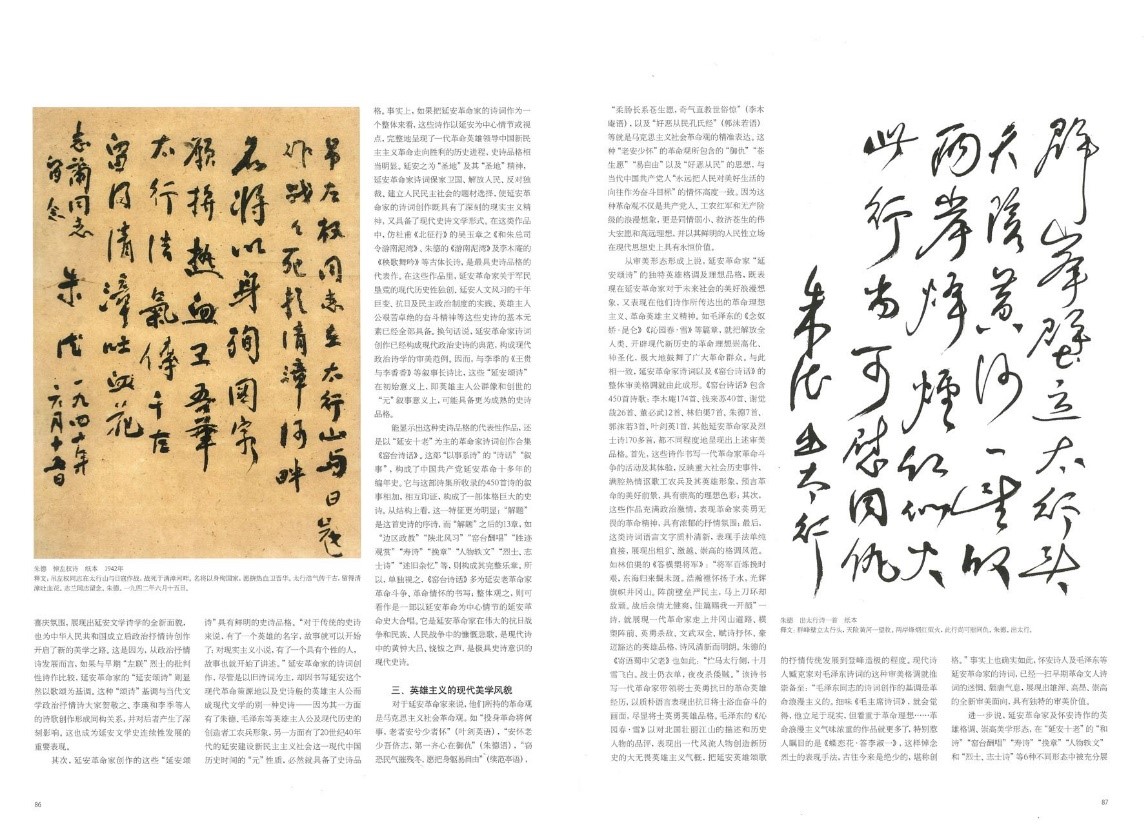 吊左权同志在太行山与日寇
作战战死于清漳河畔
名将以身殉国家
愿拼热血卫吾华
太行浩气传千古
留得清漳吐血花
志兰同志
留念
朱德
一九四二年
六月十五日
朱德 悼左权诗 纸本 1942年
释文:吊左权同志在太行山与日寇作战,战死于清漳河畔。名将以身殉国家,愿拼热血卫吾华。太行浩气传千古,留得清
漳吐血花。志兰同志留念。朱德。一九四二年六月十五日。
喜庆氛围,展现出延安文学诗学的全新面貌,
也为中华人民共和国成立后政治抒情诗创作
开启了新的美学之路。这是因为,从政治抒情
诗发展而言,如果与早期“左联”烈士的批判
性诗作比较,延安革命家的“延安颂诗”则显
然以歌颂为基调。这种“颂诗”基调与当代文
学政治抒情诗大家贺敬之、李瑛和李季等人
的诗歌创作形成同构关系,并对后者产生了深
刻影响。这也成为延安文学史连续性发展的
重要表现。
其次,延安革命家创作的这些“延安颂
诗”具有鲜明的史诗品格。“对于传统的史诗
来说,有了一个英雄的名字,故事就可以开始
了;对现实主义小说,有了一个具有个性的人,
故事也就开始了讲述。”延安革命家的诗词创
作,尽管是以旧诗词为主,却因书写延安这个
现代革命策源地以及史诗般的英雄主人公而
成现代文学的别一种史诗——因为其一方面
有了朱德、毛泽东等英雄主人公及现代历史的
创造者工农兵形象,另一方面有了20世纪40年
代的延安建设新民主主义社会这一现代中国
历史时间的“元”性质,必然就具备了史诗品
格。事实上,如果把延安革命家的诗词作为一
个整体来看,这些诗作以延安为中心情节或视
点,完整地呈现了一代革命英雄领导中国新民
主主义革命走向胜利的历史进程,史诗品格相
当明显。延安之为“圣地”及其“圣地”精神,
延安革命家诗词保家卫国、解放人民、反对独
裁、建立人民民主社会的题材选择,使延安革
命家的诗词创作既具有了深刻的现实主义精
神,又具备了现代史诗文学形式。在这类作品
中,仿杜甫《北征行》的吴玉章之《和朱总司
令游南泥湾》、朱德的《游南泥湾》及李木庵的
《秧歌舞吟》等古体长诗,是最具史诗品格的
代表作。在这些作品里,延安革命家关于军民
垦荒的现代历史性独创、延安人文风习的千年
巨变、抗日及民主政治制度的实践、英雄主人
公艰苦卓绝的奋斗精神等这些史诗的基本元
素已经全部具备。换句话说,延安革命家诗词
创作已经构成现代政治史诗的典范,构成现代
政治诗学的审美范例。因而,与李季的《王贵
与李香香》等叙事长诗比,这些“延安颂诗”
在初始意义上,即英雄主人公群像和创世的
“元”叙事意义上,可能具备更为成熟的史诗
品格。
能显示出这种史诗品格的代表性作品,还
是以“延安十老”为主的革命家诗词创作合集
《窑台诗话》。这部“以事系诗”的“诗话”“叙
事”,构成了中国共产党延安革命十多年的
编年史。它与这部诗集所收录的450首诗的叙
事相加,相互印证,构成了一部体格巨大的史
诗。从结构上看,这一特征更为明显:“解题”
是这首史诗的序诗,而“解题”之后的13章,如
“边区政教”“陕北风习”“窑台酬唱”“胜迹
观赏”“寿诗”“挽章”“人物轶文”“烈士、志
士诗”“述旧余忆”等,则构成其完整乐章。所
以,单独视之,《窑台诗话》多为延安老革命家
革命斗争、革命情怀的书写;整体观之,则可
看作是一部以延安革命为中心情节的延安革
命史大合唱。它是延安革命家在伟大的抗日战
争和民族、人民战争中的慷慨悲歌,是现代诗
中的黄钟大吕、恢恢之声,是极具史诗意识的
现代史诗。
三、英雄主义的现代美学风貌
对于延安革命家来说,他们所持的革命观
是马克思主义社会革命观。如“投身革命将何
事,老者安兮少者怀”(叶剑英语),“安怀老
少吾侪志,第一齐心在御仇”(朱德语),“窃
恐民气摧残冬,愿把身躯易自由”(续范亭语),
86
“柔肠长系苍生愿,奇气直教世俗惊”(李木
庵语),以及“好恶从民孔氏经”(郭沫若语)
等就是马克思主义社会革命观的精准表达。这
种“老安少怀”的革命观所包含的“御仇”“苍
生愿”“易自由”以及“好恶从民”的思想,与
当代中国共产党人“永远把人民对美好生活的
向往作为奋斗目标”的情怀高度一致。因为这
种革命观不仅是共产党人、工农红军和无产阶
级的浪漫想象,更是同情弱小、救济苍生的伟
大宏愿和高远理想,并以其鲜明的人民性立场
在现代思想史上具有永恒价值。
从审美形态形成上说,延安革命家“延
安颂诗”的独特英雄格调及理想品格,既表
现在延安革命家对于未来社会的美好浪漫想
象,又表现在他们诗作所传达出的革命理想
主义、革命英雄主义精神。如毛泽东的《念奴
娇·昆仑》《沁园春·雪》等篇章,就把解放全
人类、开辟现代新历史的革命理想崇高化、
神圣化,极大地鼓舞了广大革命群众。与此
相一致,延安革命家诗词以及《窑台诗话》的
整体审美格调就由此成形。《窑台诗话》包含
450首诗歌:李木庵174首、钱来苏40首、谢觉
哉26首、董必武12首、林伯渠7首、朱德7首、
郭沫若3首、叶剑英1首,其他延安革命家及烈
士诗170多首,都不同程度地呈现出上述审美
品格。首先,这些诗作书写一代革命家革命斗
争的活动及其体验,反映重大社会历史事件,
满腔热情讴歌工农兵及其英雄形象,预言革
命的美好前景,具有崇高的理想色彩;其次,
这些作品充满政治激情,表现革命家英勇无
畏的革命精神,具有浓郁的抒情氛围;最后,
这类诗词语言文字质朴清新、表现手法单纯
直接,展现出粗犷、激越、崇高的格调风范。
如林伯渠的《答横槊将军》:“将军百练挽时
艰,东海归来鬓未斑。浩瀚襟怀扬子水,光辉
旗帜井冈山。阵前壁垒严民主,马上刀环却
敌顽。战后余情尤健爽,佳篇赐我一开颜”一
诗,就展现一代革命家走上井冈山道路,横
槊阵前、英勇杀敌、文武双全、赋诗抒怀、豪
迈豁达的英雄品格,诗风清新而明朗。朱德的
《寄语蜀中父老》也如此:“伫马太行侧,十月
雪飞白。战士仍衣单,夜夜杀倭贼。”该诗书
写一代革命家带领将士英勇抗日的革命英雄
经历,以质朴语言表现出抗日将士浴血奋斗的
画面,尽显将士英勇英雄品格。毛泽东的《沁
园春·雪》以对北国壮丽江山的描述和历史
人物的品评,表现出一代风流人物创造新历
史的大无畏英雄主义气概,把延安英雄颂歌
群峰壁立太行头
天险黄河一望收
两岸烽烟红似火
此行当可慰同仇
朱德 出太行
朱德 出太行诗一首 纸本
释文:群峰壁立太行头,天险黄河一望收。两岸烽烟红似火,此行尚可慰同仇。朱德,出太行。
的抒情传统发展到登峰造极的程度。现代诗
人臧克家对毛泽东诗词的这种审美格调就推
崇备至:“毛泽东同志的诗词创作的基调是革
命浪漫主义的。细味《毛主席诗词》,就会觉
得,他立足于现实,但着重于革命理想……革
命浪漫主义气味浓重的作品就更多了,特别惹
人瞩目的是《蝶恋花·答李淑一》,这样悼念
烈士的表现手法,古往今来是绝少的,堪称创
格。”事实上也确实如此,怀安诗人及毛泽东等
延安革命家的诗词,已经一扫早期革命文人诗
词的迷惘、颓唐气息,展现出雄浑、高昂、崇高
的全新审美面向,具有独特的审美价值。
进一步说,延安革命家及怀安诗作的英
雄格调、崇高美学形态,在“延安十老”的“和
诗”“窑台酬唱”“寿诗”“挽章”“人物轶文”
和“烈士、志士诗”等6种不同形态中被充分展
87